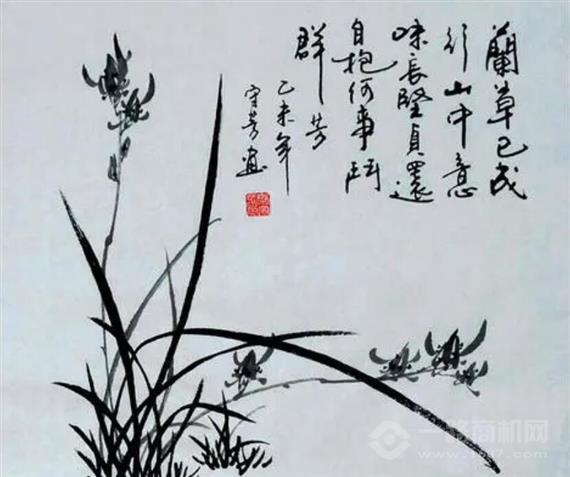 蘭草已成
行山中意
味長堅貞還
自抱何事鬥
群芳
乙未年
守芳画
一路商机网
www.1687.com